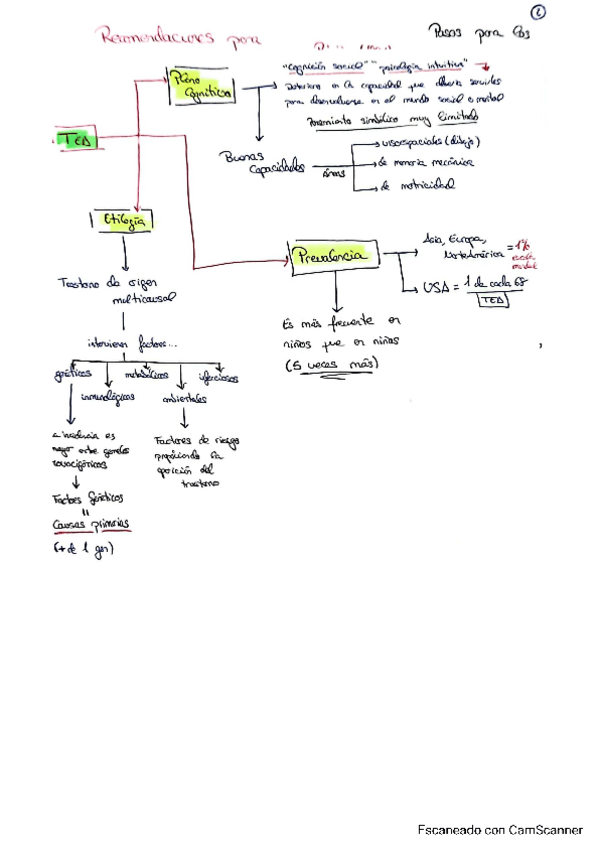 2
Recomendaciones para
Pasos para los
Plano
Cognitivo
"Cognición social" "psicología intuitiva"
Deterioro en la capacidad que debería servirles
para desenvolverse en el mundo social o mental
Pensamiento simbólico muy limitado
TEA
Buenas
Capacidades
áreas
visoespaciales (dibujo)
de memoria mecánica
de motricidad
Etilogía
Prevalencia
Asia, Europa,
Norteamérica = 1%
USA = 1 de cada 68
TEA
Trastorno de origen
multicausal
Es más frecuente en
niños que en niñas
(5 veces más)
intervienen factores...
genéticos
metabólicos
infecciosos
inmunológicos
ambientales
incidencia es
mayor entre gemelos
monocigóticos
Factores de riesgo
la
aparición del
trastorno
Factores genéticos
=
Causas primarias
(+ de 1 gen)
Escaneado con CamScanner